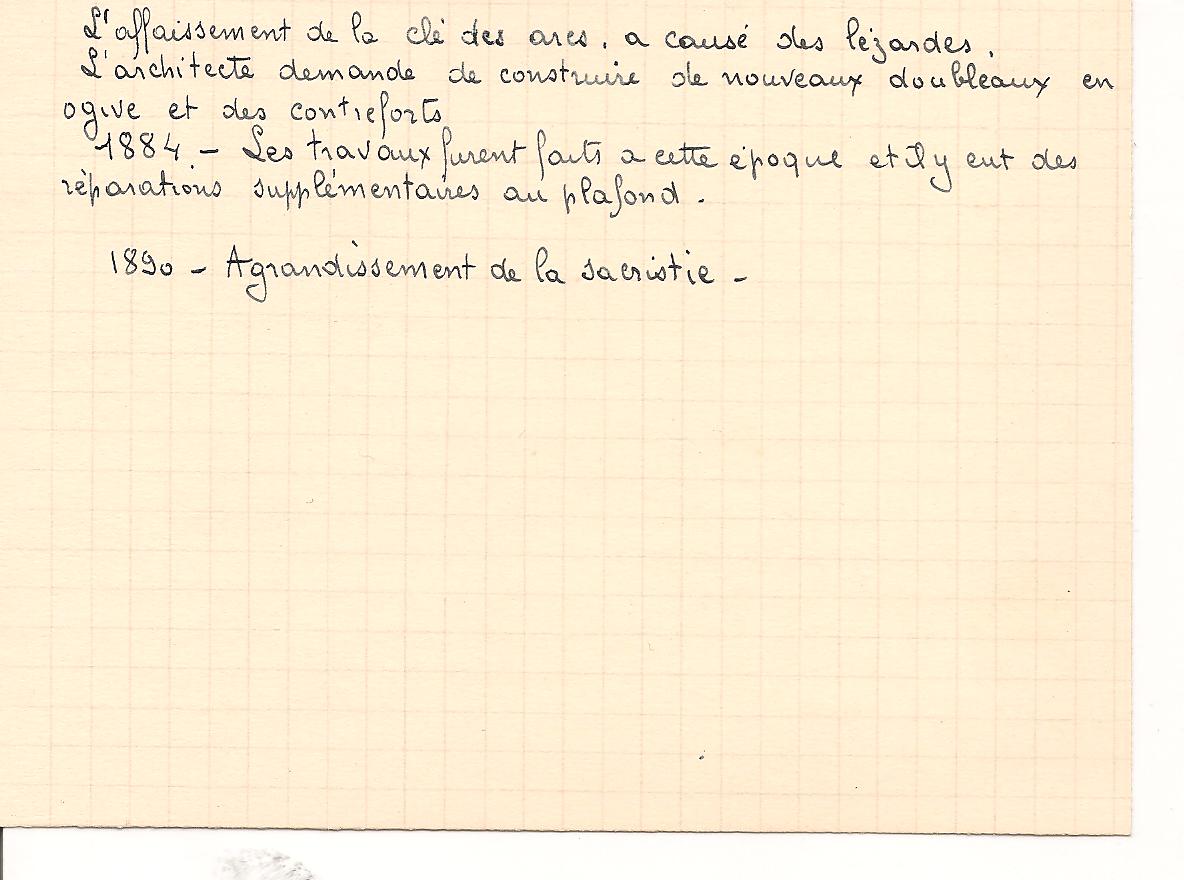 L'affaissement de la clé des arcs, a causé des lézardes.
L'architecte demande de construire de nouveaux doubleaux en
ogive et des contreforts
1884. - Les travaux furent faits a cette époque et il y eut des
réparations supplémentaires au plafond.
1890 - Agrandissement de la sacristie -